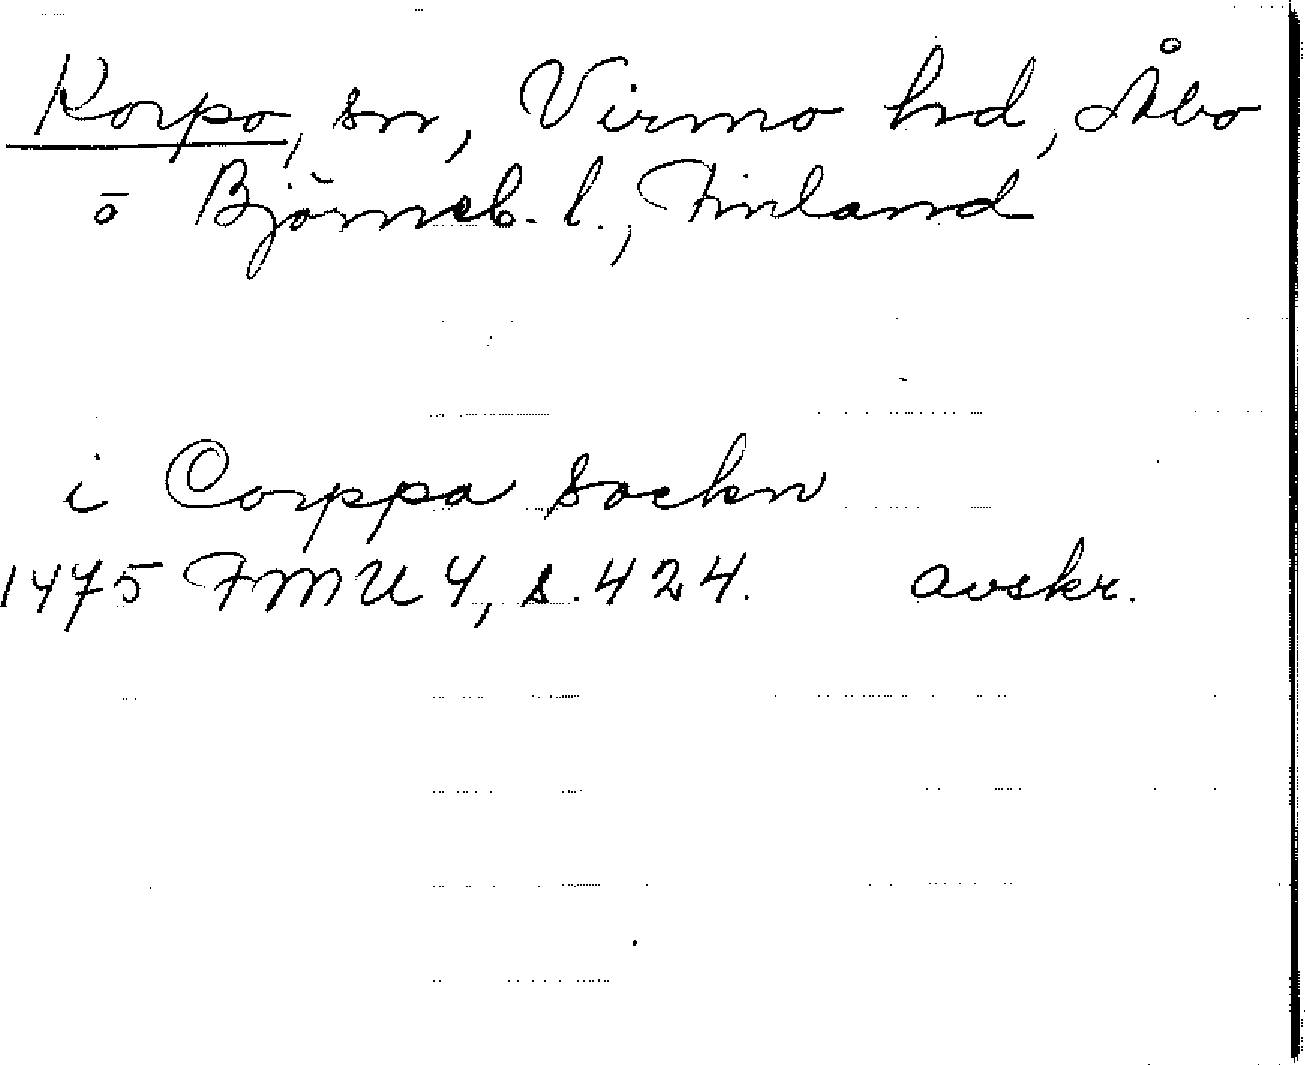 Korpo, sn, Virmo hd, Åbo
o Björneb. l., Finland
i Corppa sockn
1475 FMU 4, s. 424. avskr.